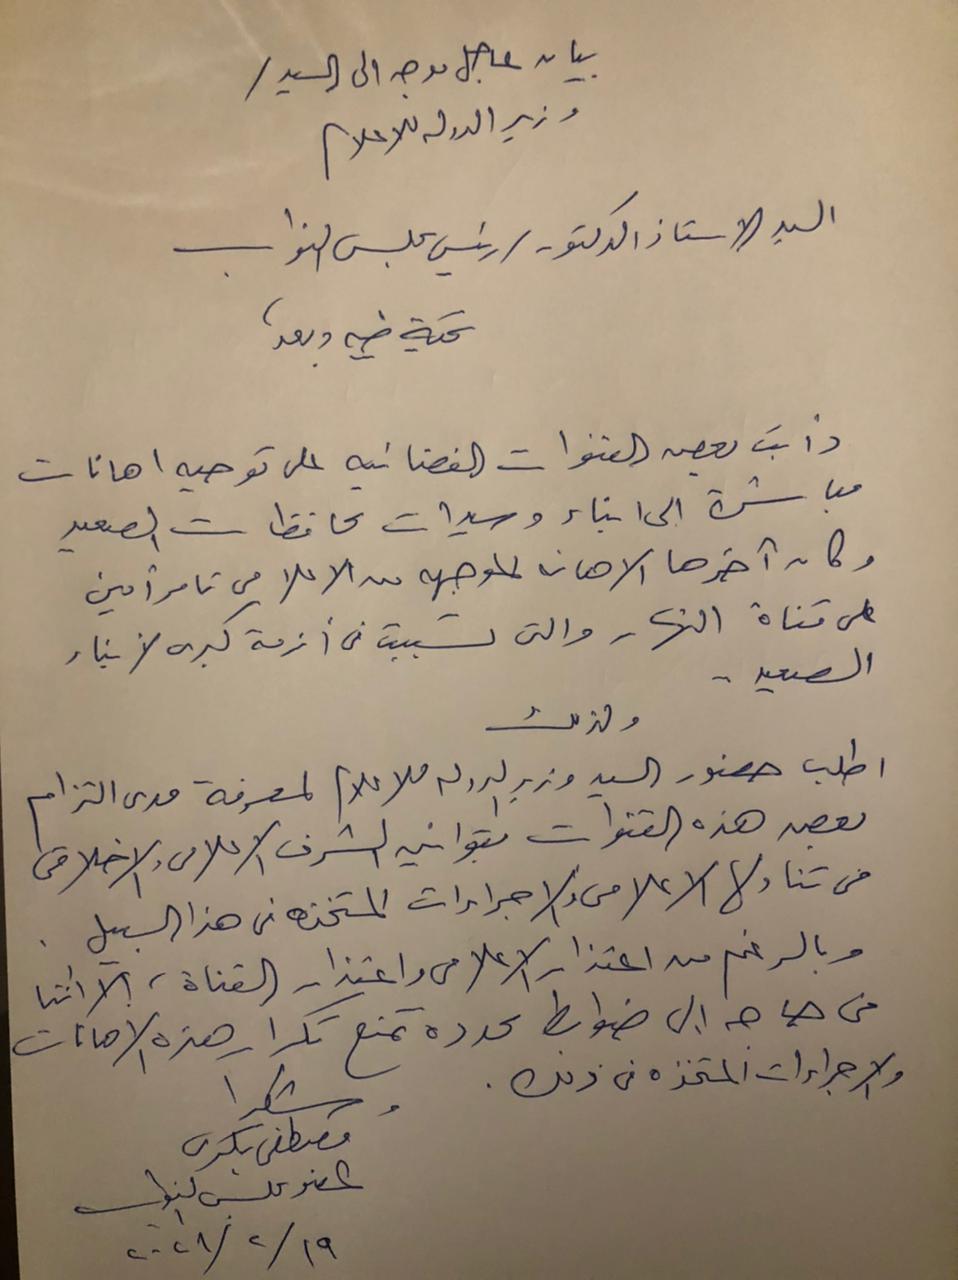 بيان عاجل موجه الى السيد /
وزير الدوله للاعلام
السيد الاستاذ الدكتور / رئيس مجلس النواب
تحية طيبه وبعد،
دأبت بعض القنوات الفضائيه على توجيه اهانات
مباشرة الى ابناء وسيدات محافظات الصعيد
وكان آخرها الاهانه الموجهه من الاعلامي تامر أمين
على قناة النهار والتى تسببت فى أزمة كبرى لابناء
الصعيد -
ولذلك
اطلب حضور السيد وزير الدوله للاعلام لمعرفة مدى التزام
بعض هذه القنوات بقوانين الشرف الاعلامى والاخلاقى
فى تناولها الاعلامى والاجراءات المتخذه فى هذا السبيل .
وبالرغم من اعتذار الاعلامى واعتذار القناة ، الا اننا
فى حاجه إلى ضوابط محددة تمنع تكرار هذه الاهانات
والاجراءات المتخذه فى ذلك .
وشكرا
مصطفى بكرى
عضو مجلس النواب
١٩/ ٢ / ٢٠٢١